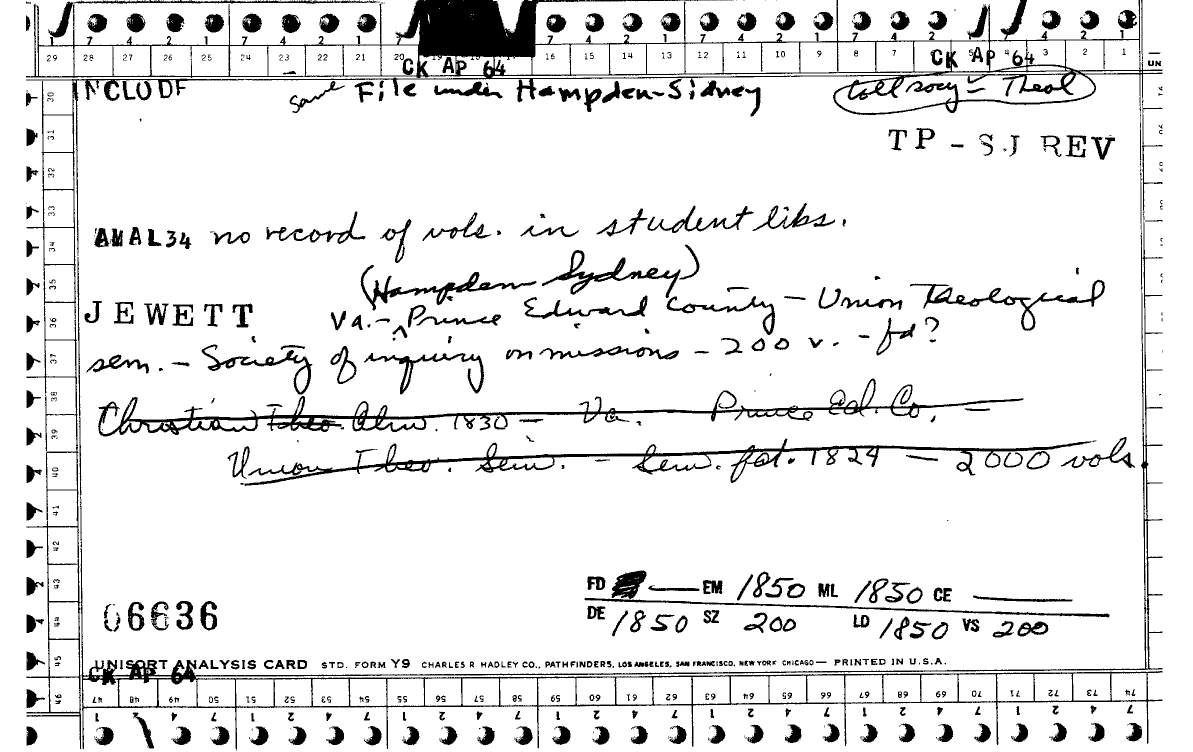 7 4 2 1 7 4 2 1 7 4 2 1 7 4 2 1 7 4 2 1
29 28 27 26 25 24 23 22 21 20 16 15 14 13 12 11 10 9 8 7 5 4 3 2 1
CK AP 64 CK AP 64 UN
INCLUDE Same File under Hampden-Sidney Coll socy - Theol
TP - SJ REV
AMAL34 no record of vols. in student libs.
(Hampden Sydney)
JEWETT Va. - ^ Prince Edward County - Union Theological
sem. - Society of inquiry on missions - 200 v. - fd?
Christian Theo. Alm. 1830 - Va. Prince Ed. Co. -
Union Theo. Sem. - Sem. fdt. 1824 - 2000 vols.
FD — EM 1850 ML 1850 CE —
06636 DE 1850 SZ 200 LD 1850 VS 200
UNISORT ANALYSIS CARD STD. FORM Y9 CHARLES R HADLEY CO., PATHFINDERS, LOS ANGELES, SAN FRANCISCO, NEW YORK CHICAGO — PRINTED IN U.S.A.
CK AP 64
47 48 49 50 51 52 53 54 55 56 57 58 59 60 61 62 63 64 65 66 67 68 69 70 71 72 73 74